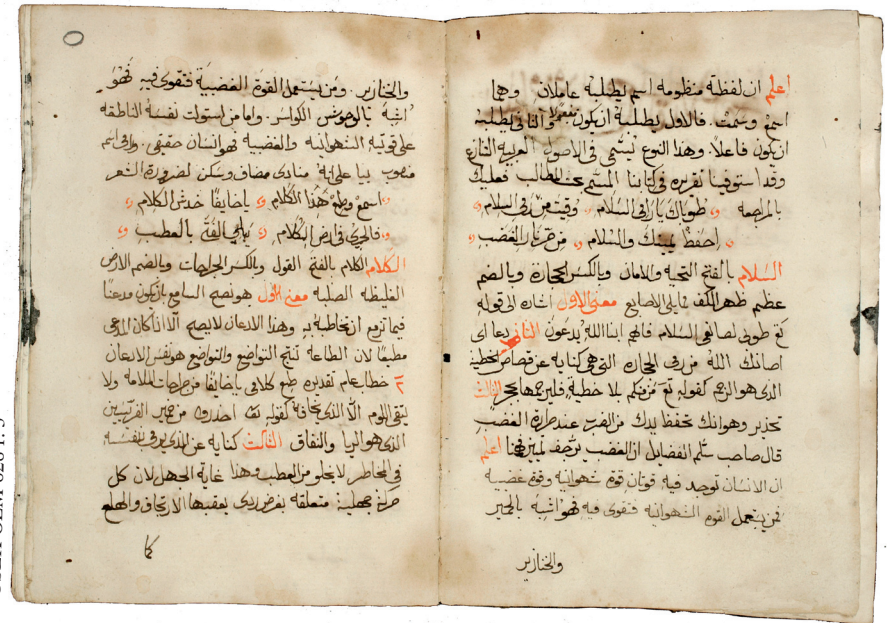 اعلم ان لفظة منظومه اسم يطلبه عاملان وهما
اسمع وسمت. فالاول يطلبه ان يكون مفعولا والثاني يطلبه
ان يكون فاعلا. وهذا النوع يسمى في الاصول العربيه التنازع
وقد استوفينا تقريره في كتابنا المسمى بحث المطالب فعليك
بالمراجعه طوباك يا راقي السلام وقيت من السلام
احفظ يمينك والسلام من الغضب
السلام بالفتح التحية والامان وبالكسر الحجارة وبالضم
عظم ظهر الكف مما يلي الاصابع معنى الاول اشاره الى قوله
تع طوبى لصانعي السلام فانهم ابنا الله يدعون الثاني دعا اي
صانك الله من رمي الحجاره التي هي كنايه عن قصاص الخطية
الذي هو الرجم كقوله تع من منكم بلا خطية فليرجمها بحجر الثالث
تحذير وهو انك تحفظ يدك من الضرب عند حرارة الغضب
قال صاحب سلم الفضايل ان الغضب اعلم
ان الانسان توجد فيه قوتان قوة شهوانيه وقوة غضبيه
فمن يستعمل القوه الشهوانيه فتقوى فيه فهو اشبه بالحمير
والخنازير
والخنازير. ومن يستعمل القوة الغضبية فتقوى فيه فهو
اشبه بالوحوش الكواسر. واما من استولت نفسه الناطقه
على قوتيه الشهوانيه والغضبيه فهو انسان حقيقي. وراقي اسم
منصوب بيا على انه منادى مضاف وسكن لضرورة الشعر
اسمع وطع هذا الكلام يا خايفا خدش الكلام
فالجري في ارض الكلام بالعطب
الكلام الكلام بالفتح القول وبالكسر الجراحات وبالضم الارض
الغليظه الصلبه معنى الاول هو نصح السامع بان يكون مدعنا
فيما تروم ان تخاطبه به وهذا الادعان لا يصح الا اذا كان المدعي
مطيعا لان الطاعه تنتج التواضع والتواضع هو نفس الادعان
٢ خطاب عام تقديره طع كلامي يا خايفا من جراحات الملامه ولا
يتقي اللوم الا الذي يخافه كقوله تع احدروا من خمير الفريسيين
الذي هو الريا والنفاق الثالث كنايه عن الذي يرمي بنفسه
في المخاطر لا يخلو من العطب وهذا غاية الجهل لان كل
حركة جهلية متعلقه بغرض ردي يعقبها الارتجاف والهلع
كما